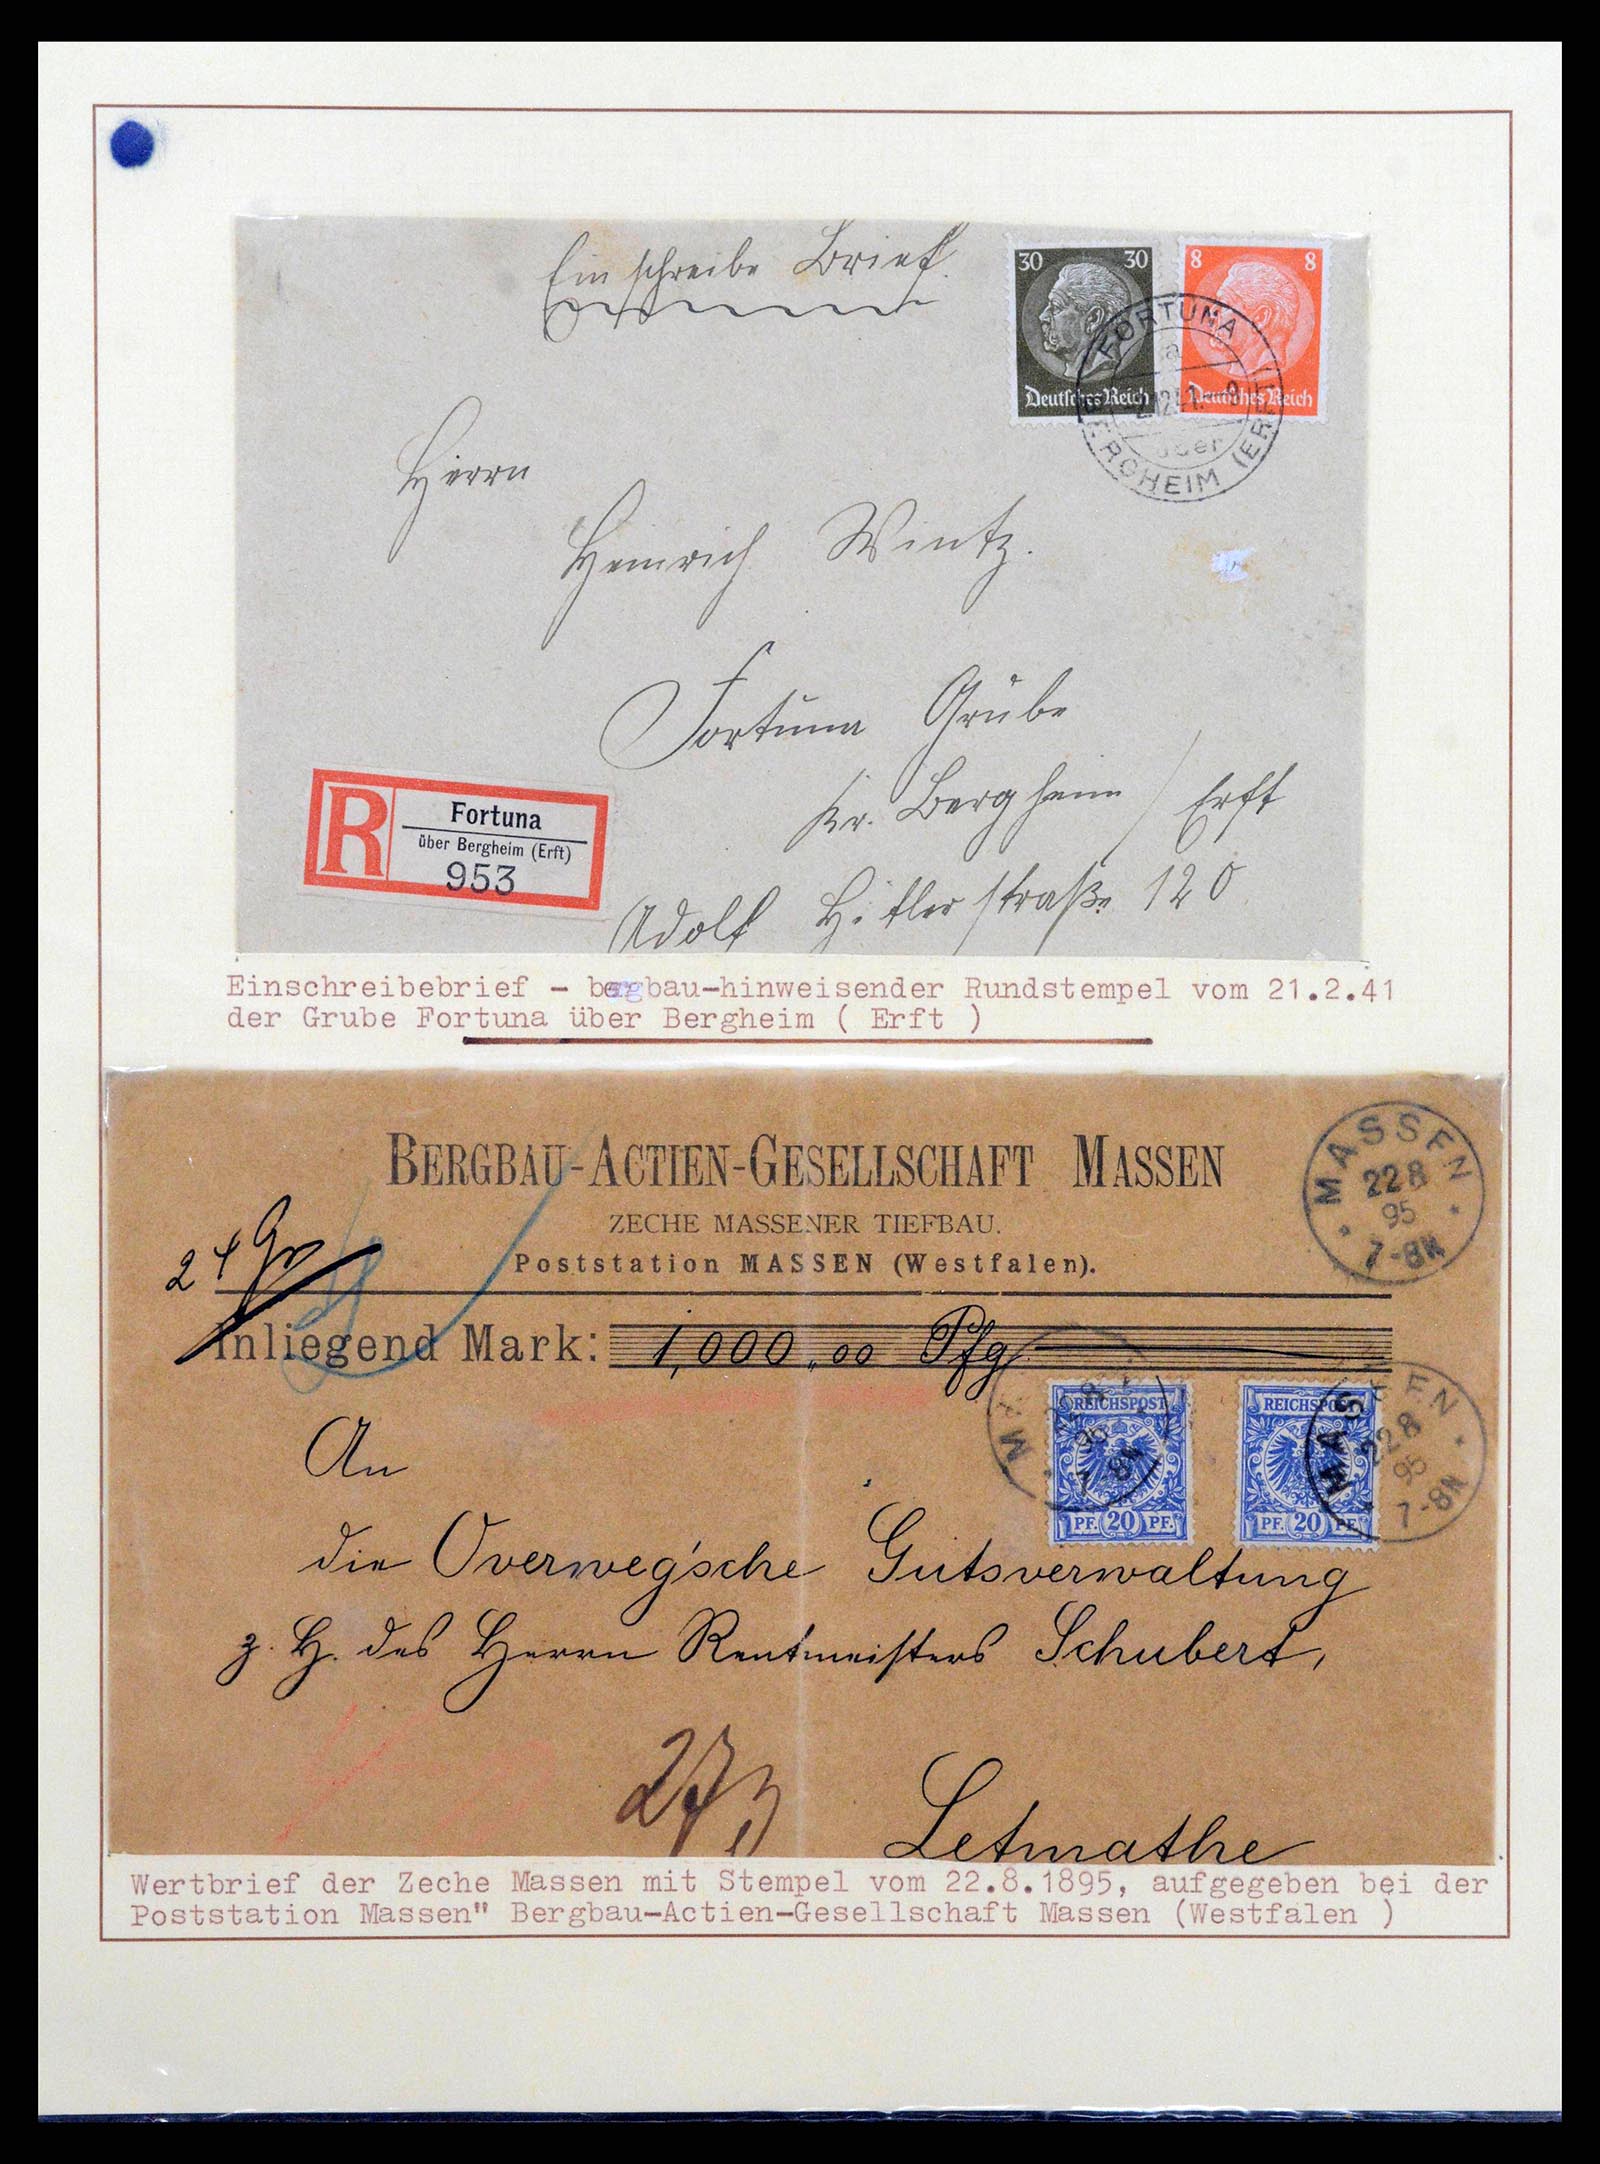 Einschreibe Brief.
30 30
Deutsches Reich
8 8
Deutsches Reich
FORTUNA
a
über
BERGHEIM (ERFT)
Herrn
Heinrich Wintz.
Fortuna Grube
Kr. Bergheim / Erft
Adolf Hitlerstraße 120
R
Fortuna
über Bergheim (Erft)
953
Einschreibebrief - bergbau-hinweisender Rundstempel vom 21.2.41
der Grube Fortuna über Bergheim ( Erft )
BERGBAU-ACTIEN-GESELLSCHAFT MASSEN
ZECHE MASSENER TIEFBAU.
Poststation MASSEN (Westfalen).
MASSEN
22 8
95
7-8N
24 Gr
Inliegend Mark: 1,000,00 Pfg
REICHSPOST
PF. 20 PF.
REICHSPOST
PF. 20 PF.
MASSEN
22 8
95
7-8N
An
die Overweg'sche Gutsverwaltung
z. H. des Herrn Rentmeisters Schubert,
Letmathe
Wertbrief der Zeche Massen mit Stempel vom 22.8.1895, aufgegeben bei der
Poststation Massen" Bergbau-Actien-Gesellschaft Massen (Westfalen )